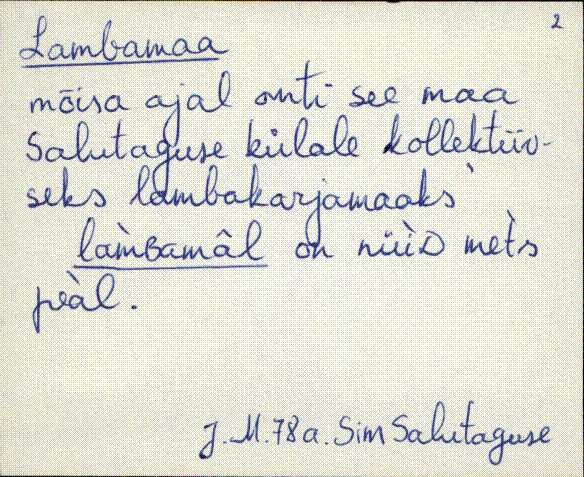 2
Lambamaa
mõisa ajal anti see maa
Salutaguse külale kollektiiv-
seks lambakarjamaaks
làmbamâl on nüüD mèts
peàl.
J.M. 78 a. Sim Salutaguse